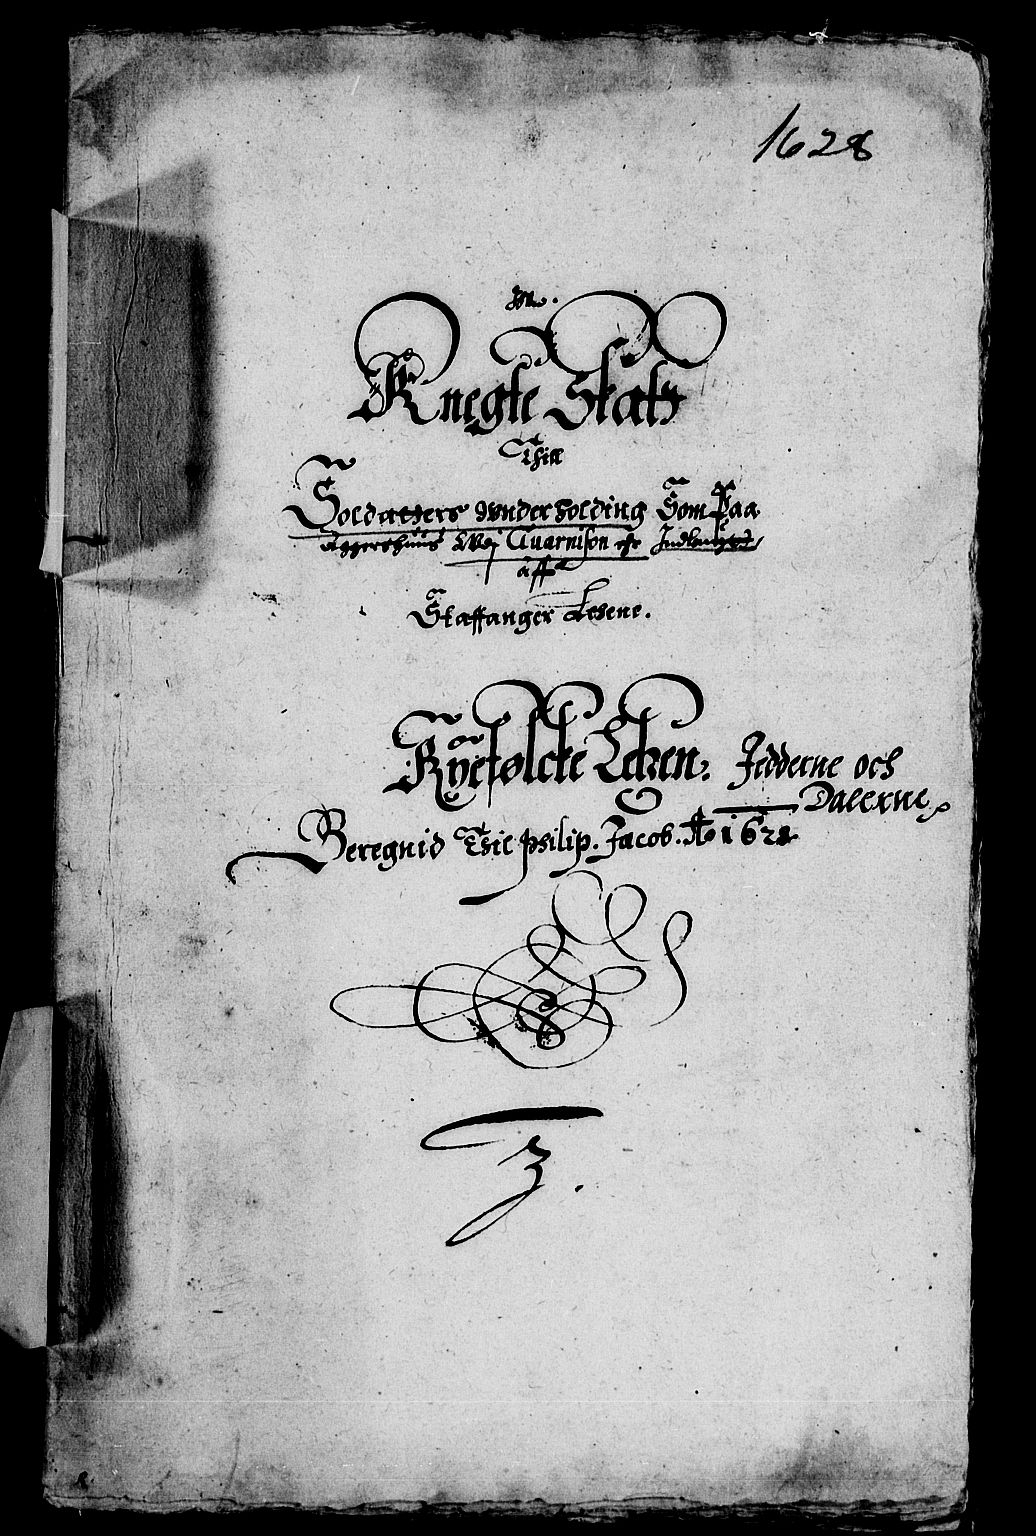 1628
Knegte Skatt
Thill
Soldatters Wnderholding Som Paa
Aggershuus Udj Quarnison er Indlauget
aff
Staffanger Lehene.
Ryefølcke Lehen. Jedderne och
Dalerne
Beregnid Thil Philip. Jacob. Ao 1628
3.